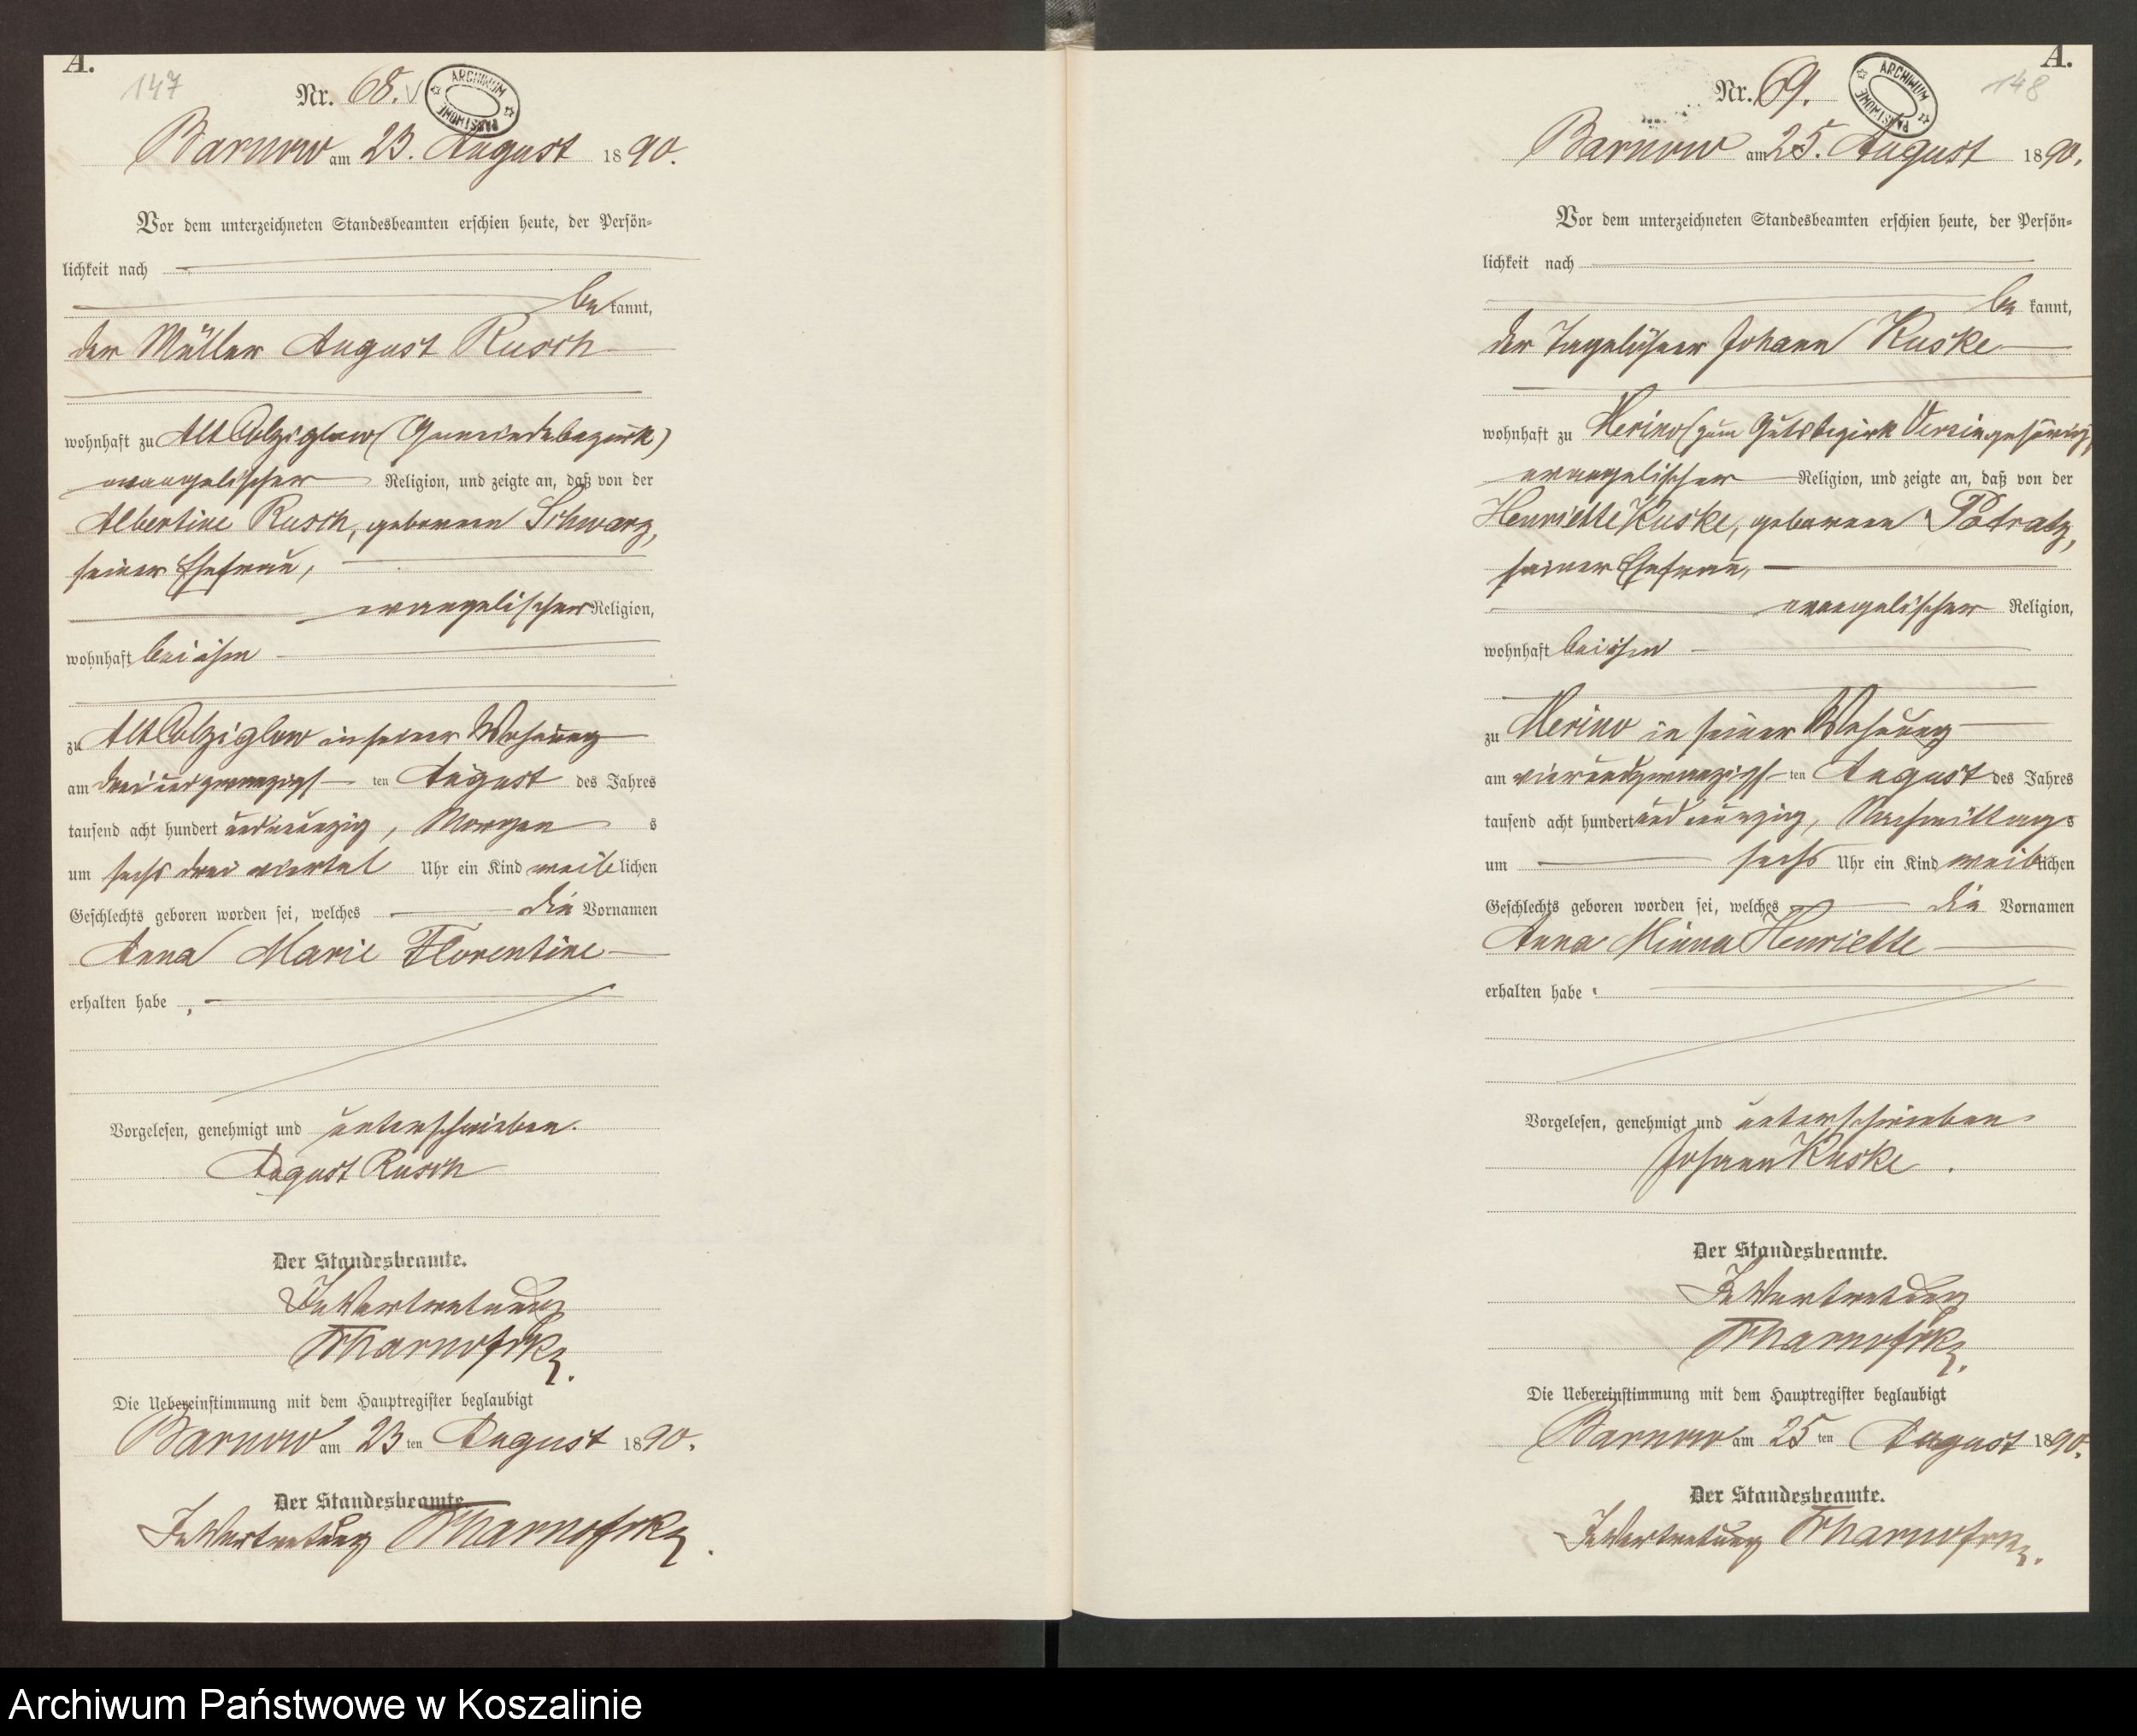 A.
147
Nr. 68.
ARCHIWUM PAŃSTWOWE
Barnow am 23. August 1890.
Vor dem unterzeichneten Standesbeamten erschien heute, der Persön-
lichkeit nach
bekannt,
der Müller August Rusch
wohnhaft zu Alt Colziglow (Gemeindebezirk)
evangelischer Religion, und zeigte an, daß von der
Albertine Rusch, geborenen Schwarz,
seiner Ehefrau,
evangelischer Religion,
wohnhaft bei ihm
zu Alt Colziglow in seiner Wohnung
am drei und zwanzigsten August des Jahres
tausend acht hundert und neunzig, Morgens
um sechs drei viertel Uhr ein Kind weiblichen
Geschlechts geboren worden sei, welches die Vornamen
Anna Marie Florentine
erhalten habe.
Vorgelesen, genehmigt und unterschrieben.
August Rusch
Der Standesbeamte.
In Vertretung
Die Uebereinstimmung mit dem Hauptregister beglaubigt
Barnow am 23ten August 1890.
Der Standesbeamte.
In Vertretung
A.
148
Nr. 69.
ARCHIWUM PAŃSTWOWE
Barnow am 25. August 1890.
Vor dem unterzeichneten Standesbeamten erschien heute, der Persön-
lichkeit nach
bekannt,
der Tagelöhner Johann Kuske
wohnhaft zu Merino (zum Gutsbezirk Versin gehörig)
evangelischer Religion, und zeigte an, daß von der
Henriette Kuske, geborenen Potratz,
seiner Ehefrau,
evangelischer Religion,
wohnhaft bei ihm
zu Merino in seiner Wohnung
am vierundzwanzigsten August des Jahres
tausend acht hundert und neunzig, Nachmittags
um sechs Uhr ein Kind weiblichen
Geschlechts geboren worden sei, welches die Vornamen
Anna Minna Henriette
erhalten habe.
Vorgelesen, genehmigt und unterschrieben.
Johann Kuske.
Der Standesbeamte.
In Vertretung
Die Uebereinstimmung mit dem Hauptregister beglaubigt
Barnow am 25ten August 1890.
Der Standesbeamte.
In Vertretung
Archiwum Państwowe w Koszalinie